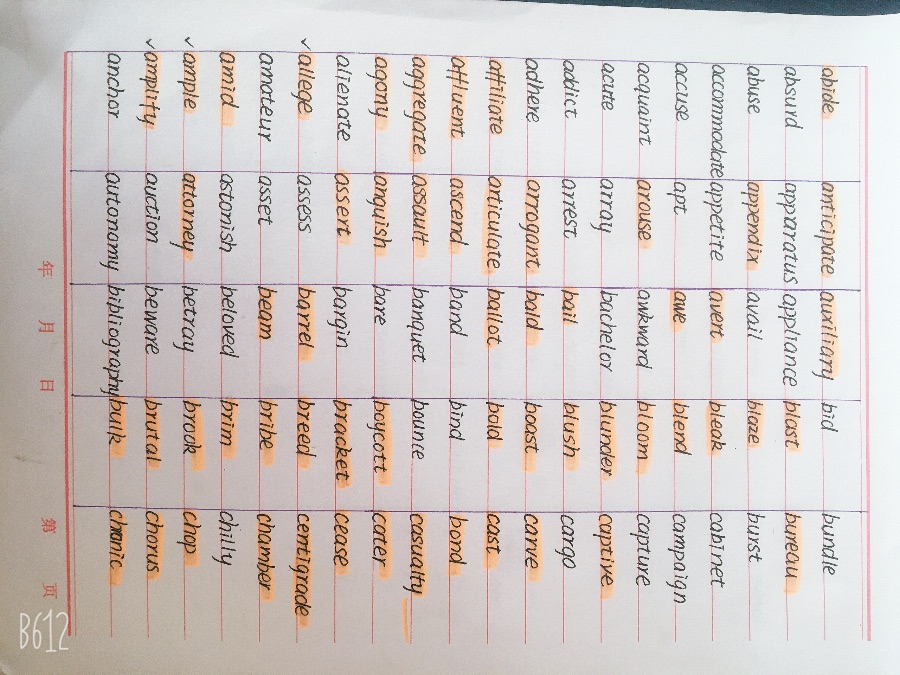 abide anticipate auxiliary bid bundle
absurd apparatus appliance blast bureau
abuse appendix avail blaze burst
accommodate appetite avert bleak cabinet
accuse apt awe blend campaign
acquaint arouse awkward bloom capture
acute array bachelor blunder captive
addict arrest bail blush cargo
adhere arrogant bald boast carve
affiliate articulate ballot bold cast
affluent ascend band bind bond
aggregate assault banquet bounce casualty
agony anguish bare boycott cater
alienate assert bargin bracket cease
✓allege assess barrel breed centigrade
amateur asset beam bribe chamber
amid astonish beloved brim chilly
✓ample attorney betray brook chop
✓amplify auction beware brutal chorus
anchor autonomy bibliography bulk
年 月 日 第 页
B612